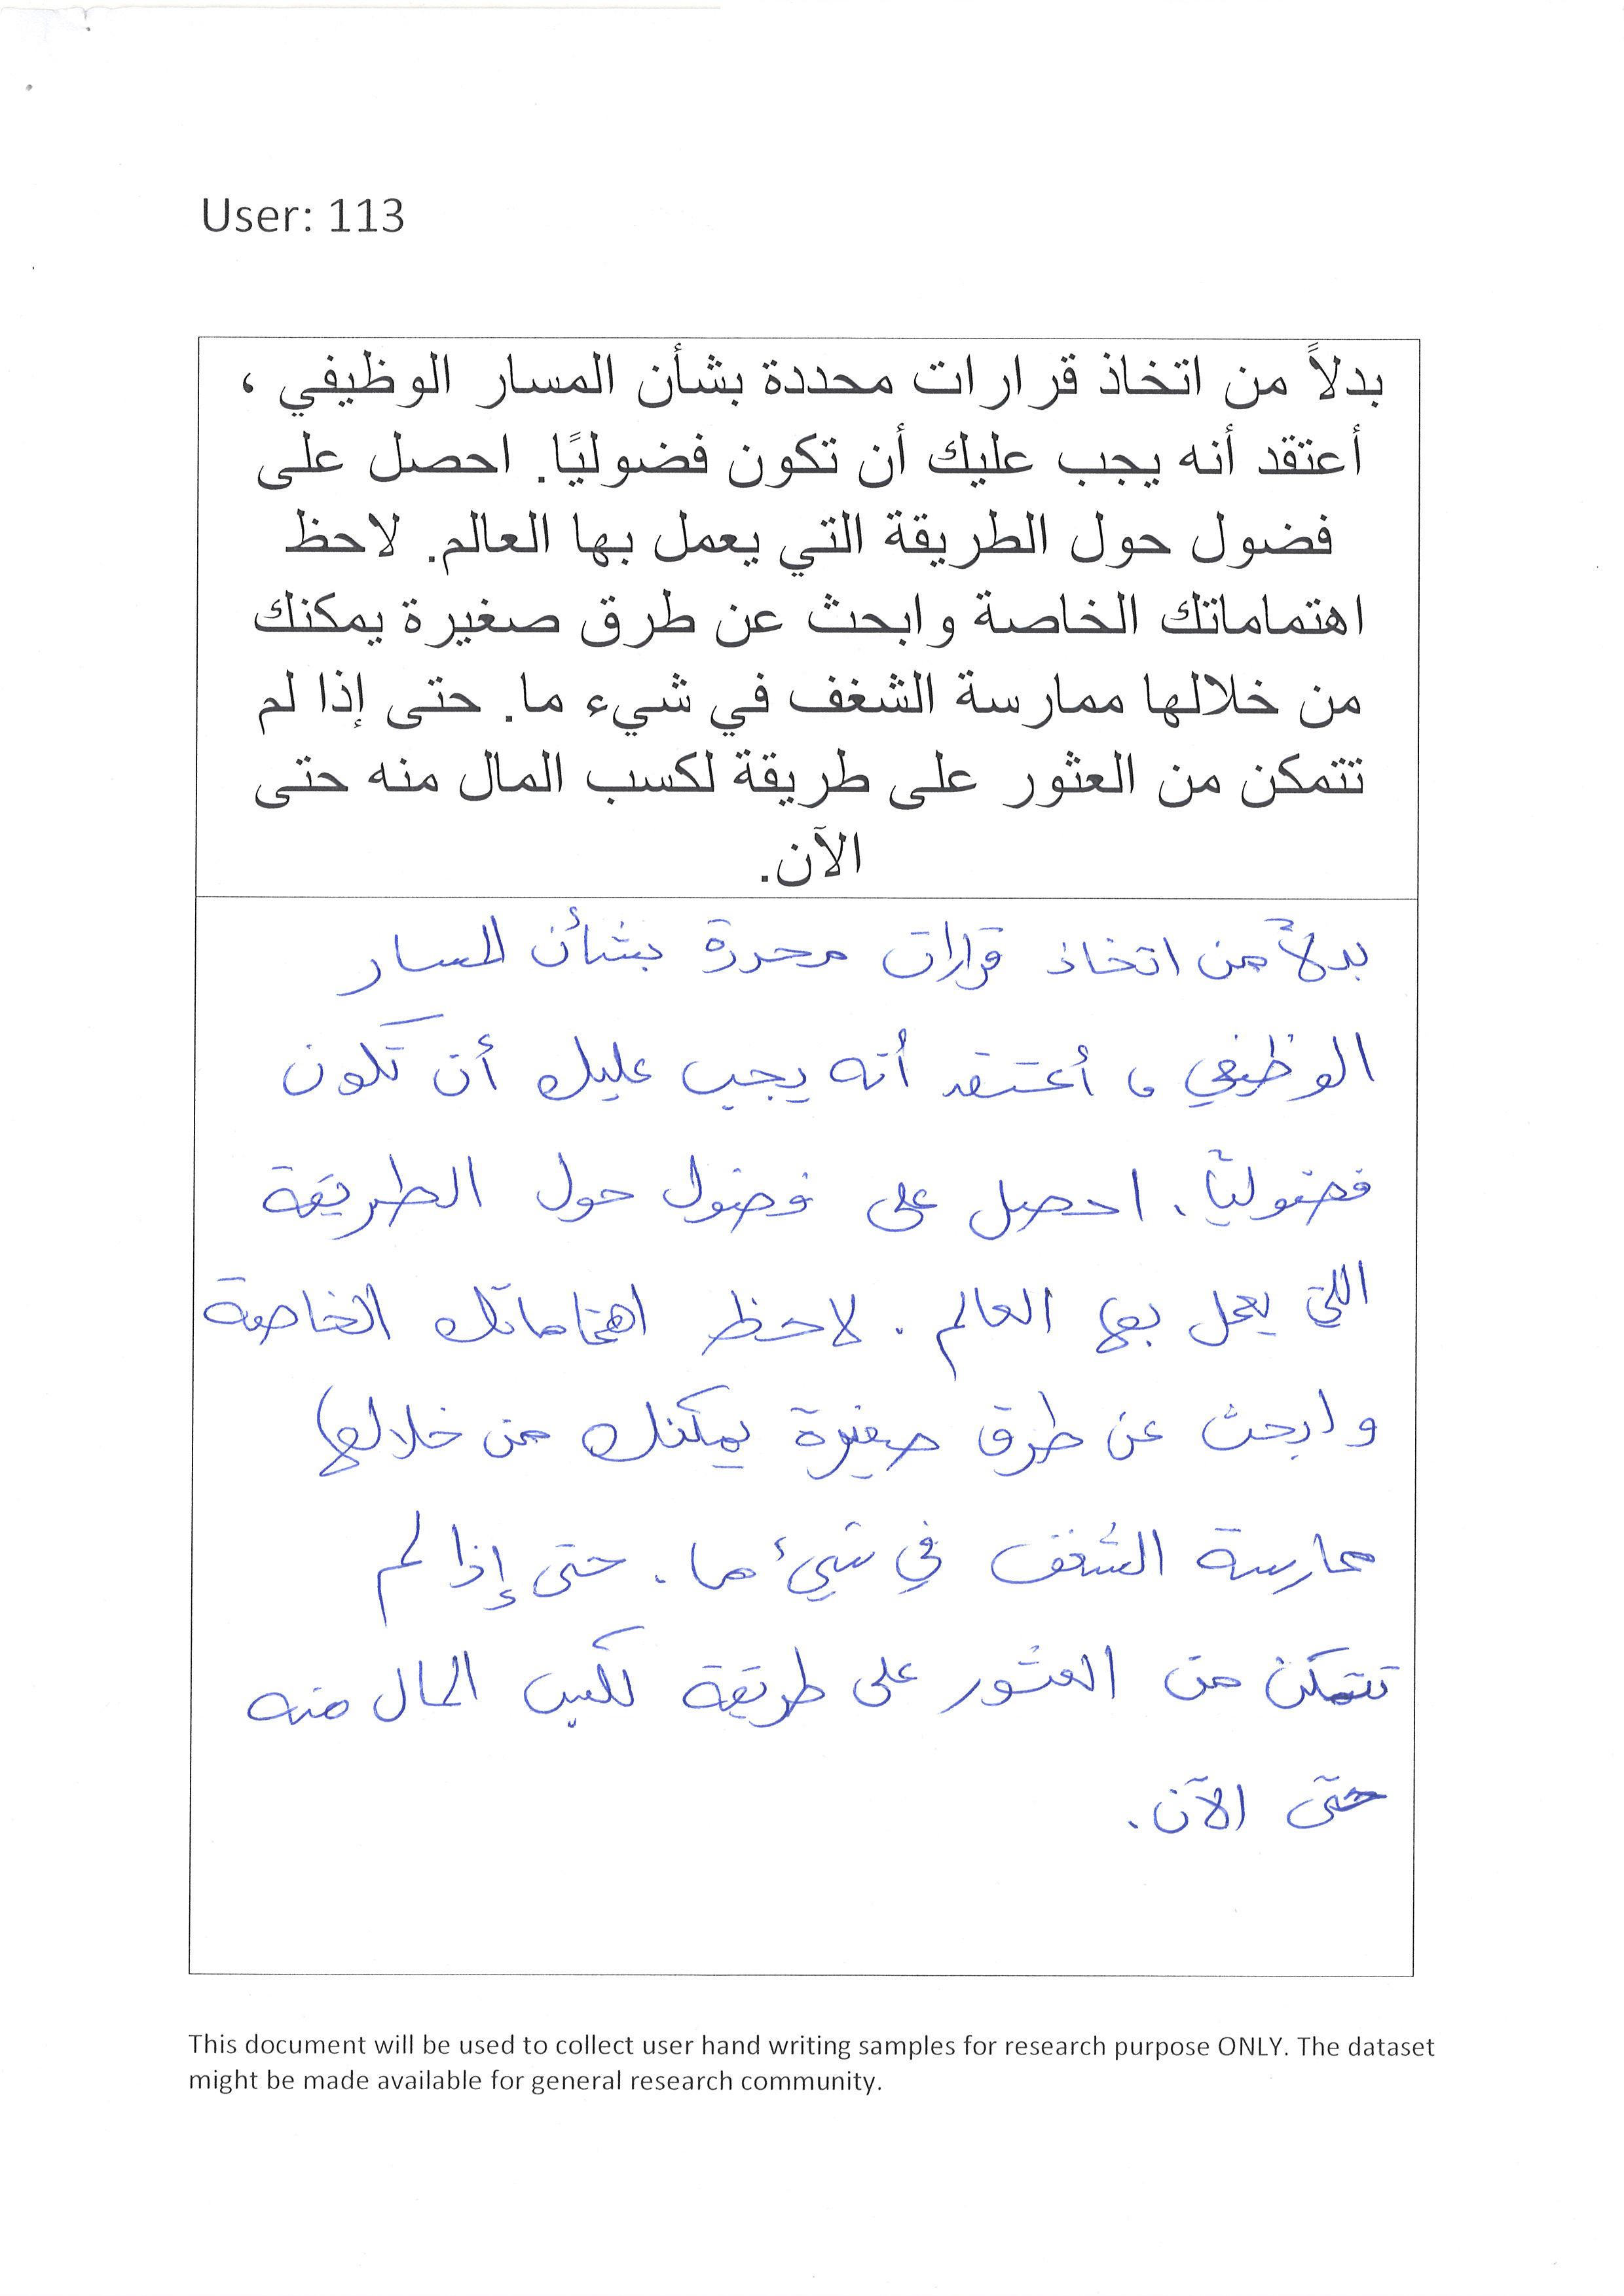 User: 113
بدلاً من اتخاذ قرارات محددة بشأن المسار الوظيفي ،
أعتقد أنه يجب عليك أن تكون فضوليًا. احصل على
فضول حول الطريقة التي يعمل بها العالم. لاحظ
اهتماماتك الخاصة وابحث عن طرق صغيرة يمكنك
من خلالها ممارسة الشغف في شيء ما. حتى إذا لم
تتمكن من العثور على طريقة لكسب المال منه حتى
الآن.
بدلاً من اتخاذ قرارات محددة بشأن المسار
الوظيفي ، أعتقد أنه يجب عليك أن تكون
فضوليًا. احصل على فضول حول الطريقة
التي يعمل بها العالم. لاحظ اهتماماتك الخاصة
وابحث عن طرق صغيرة يمكنك من خلالها
ممارسة الشغف في شيء ما. حتى إذا لم
تتمكن من العثور على طريقة لكسب المال منه
حتى الآن.
This document will be used to collect user hand writing samples for research purpose ONLY. The dataset
might be made available for general research community.